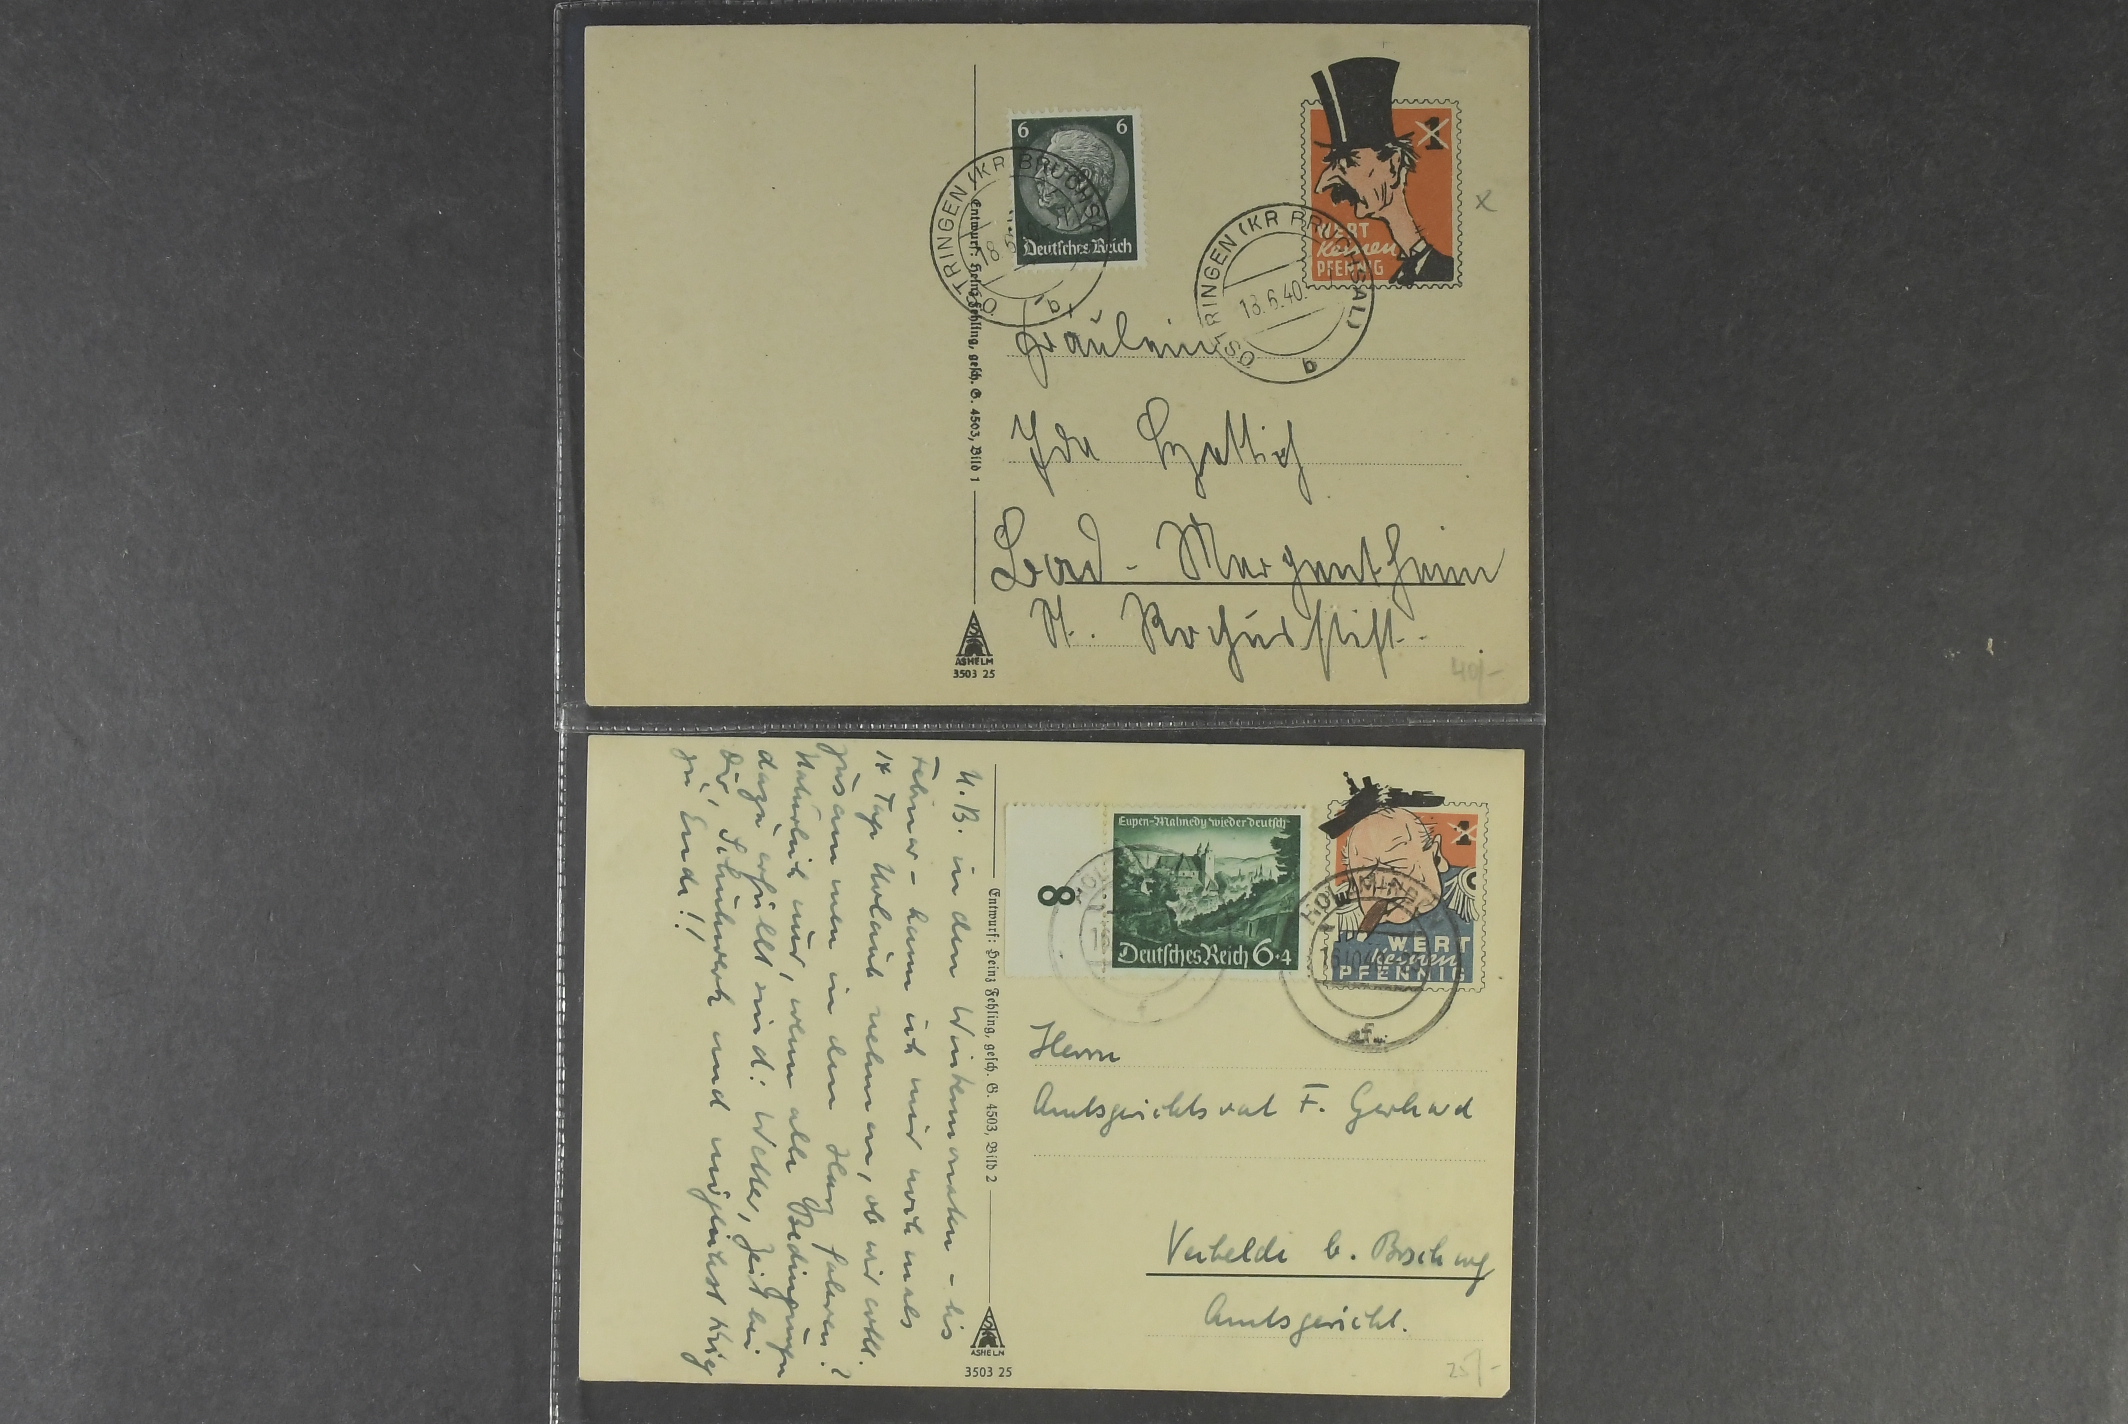 6 6
Deutsches Reich
ÖSTRINGEN (KR BRUCHSAL)
18.6
b
1
WERT
keinen
PFENNIG
x
ÖSTRINGEN (KR BRUCHSAL)
18.6.40.
b
Entwurf: Heinz Fehling, gesch. G. 4503, Bild 1
Fräulein
Ida
Bad-Mergentheim
St. Rochusstift.
ASHELM
3503 25
40/-
Eupen-Malmedy wieder deutsch
Deutsches Reich 6+4
8
1
WERT
keinen
PFENNIG
HOLZMINDEN
f
Entwurf: Heinz Fehling, gesch. G. 4503, Bild 2
Herrn
Amtsgerichtsrat F. Gerhard
Amtsgericht.
ASHELM
3503 25
25/-
N.B. in den Wintermonaten - bis
Februar - kann ich mir nochmals
14 Tage Urlaub nehmen, ob wir wohl
zusammen in den Harz fahren?
Natürlich nur, wenn alle Bedingungen
dazu erfüllt sind: Wetter, Zeit bei
Dir, Schuhwerk und möglichst Krieg
zu Ende!!